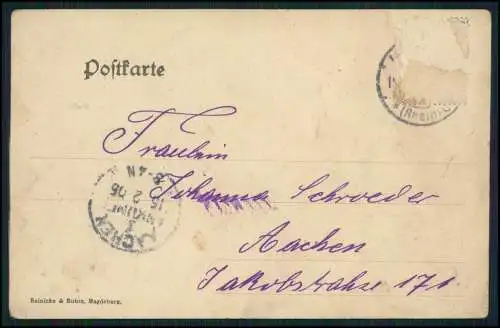 Postkarte
(RHEIN)
Fräulein
Johanna Schroeder
Aachen
Jakobstrahse 171.
AACHEN
1
15 2 05
8-9N
Reinicke & Rubin, Magdeburg.